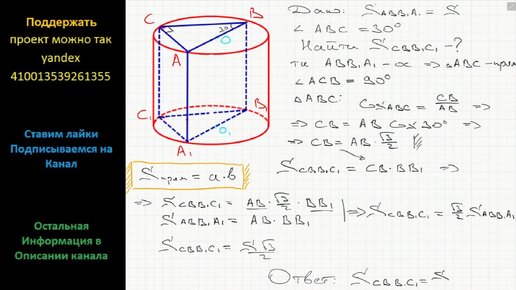 Поддержать
проект можно так
yandex
410013539261355
Ставим лайки
Подписываемся на
Канал
Остальная
Информация в
Описании канала
C
B
30°
O
A
C₁
B₁
O₁
A₁
Sпрям = a·b
Дано: S ABB₁A₁ = S
∠ ABC = 30°
Найти S CBB₁C₁ - ?
∠ ACB = 90°
△ABC: Cos ABC = CB/AB ⇒
⇒ CB = AB Cos 30° ⇒
⇒ CB = AB · √3/2
S CBB₁C₁ = CB · BB₁ ⇒
⇒ S CBB₁C₁ = AB · √3/2 · BB₁
S ABB₁A₁ = AB · BB₁
⇒ S CBB₁C₁ = √3/2 S ABB₁A₁
S CBB₁C₁ = S√3/2
Ответ: S CBB₁C₁ = S